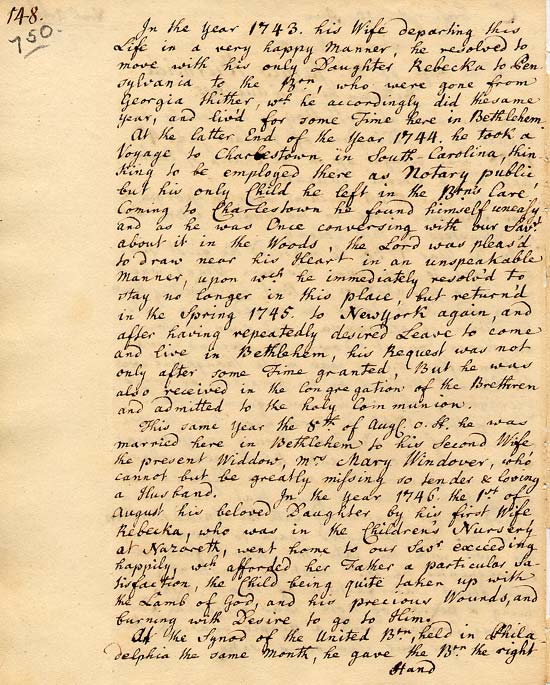 148.
750.
In the Year 1743. his Wife departing this
Life in a very happy Manner, he resolved to
move with his only Daughter Rebecka to Pen-
sylvania to the Brn, who were gone from
Georgia thither, wch he accordingly did thesame
Year, and liv'd for some Time here in Bethlehem.
At the latter End of the Year 1744. he took a
Voyage to Charlestown, in South-Carolina, thin-
king to be employed there as Notary public,
but his only Child he left in the Brn's Care.
Coming to Charlestown he found himself uneasy,
and as he was Once conversing with our Savr
about it in the Woods, the Lord was pleas'd
to draw near his Heart in an unspeakable
Manner, upon wch he immediately resolv'd to
stay no longer in this place, but return'd
in the Spring 1745. to Newyork again, and
after having repeatedly desired Leave to come
and live in Bethlehem, his Request was not
only after some Time granted, But he was
also received in the Congregation of the Brethren
and admitted to the holy Communion.
This same Year the 8th of Aug. o. st. he was
married here in Bethlehem to his Second Wife
the present Widdow, Mrs Mary Windover, who
cannot but be greatly missing so tender & loving
a Husband. In the Year 1746. the 1st of
August his beloved Daughter by his first Wife
Rebecka, who was in the Children's Nursery
at Nazareth, went home to our Savr exceeding
happily, wch afforded her Father a particular Sa-
tisfaction, the Child being quite taken up with
the Lamb of God, and his precious Wounds, and
burning with Desire to go to Him.
At the Synod of the United Brn, held in Phila
delphia the same Month, he gave the Brn the right
Hand